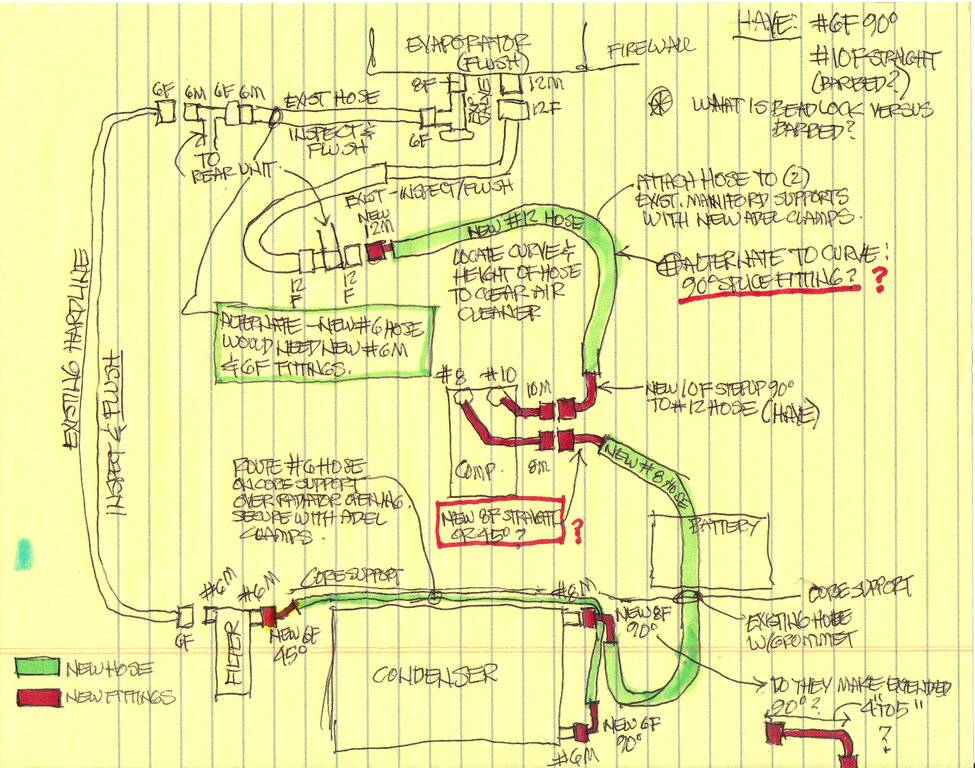 HAVE: #6F 90°
#10F STRAIGHT
(BARBED?)
WHAT IS BEADLOCK VERSUS
BARBED?
EVAPORATOR
(FLUSH)
FIREWALL
8F
12M
12F
6F
6M
6F
6M
EXIST HOSE
INSPECT &
FLUSH
6F
TO
REAR UNIT
EXIST - INSPECT/FLUSH
NEW
12M
NEW #12 HOSE
12
F
12
F
LOCATE CURVE &
HEIGHT OF HOSE
TO CLEAR AIR
CLEANER
ATTACH HOSE TO (2)
EXIST. MANIFORD SUPPORTS
WITH NEW ADEL CLAMPS.
ALTERNATE TO CURVE:
90° SPLICE FITTING? ?
ALTERNATE - NEW #6 HOSE
WOULD NEED NEW #6M
& 6F FITTINGS.
EXISTING HARDLINE
INSPECT & FLUSH
#8
#10
10M
8M
COMP.
NEW 10F STEPUP 90°
TO #12 HOSE (HAVE)
NEW #8 HOSE
NEW 8F STRAIGHT
OR 45°? ?
ROUTE #6 HOSE
ON CORE SUPPORT
OVER RADIATOR OPENING.
SECURE WITH ADEL
CLAMPS.
BATTERY
CORE SUPPORT
CORE SUPPORT
EXISTING HOLE
W/GROMMET
6F
#6M
#6M
FILTER
NEW 6F
45°
#8M
NEW 8F
90°
CONDENSER
NEW 6F
90°
#6M
DO THEY MAKE EXTENDED
90°? 4" TO 5"
?
NEW HOSE
NEW FITTINGS